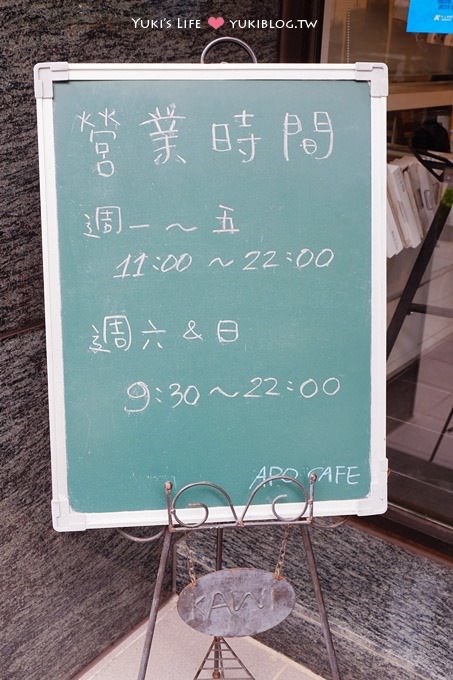 YUKI'S LIFE ❤ YUKIBLOG.TW
營業時間
週一～五
11:00～22:00
週六&日
9:30～22:00
APO CAFE
KAWI